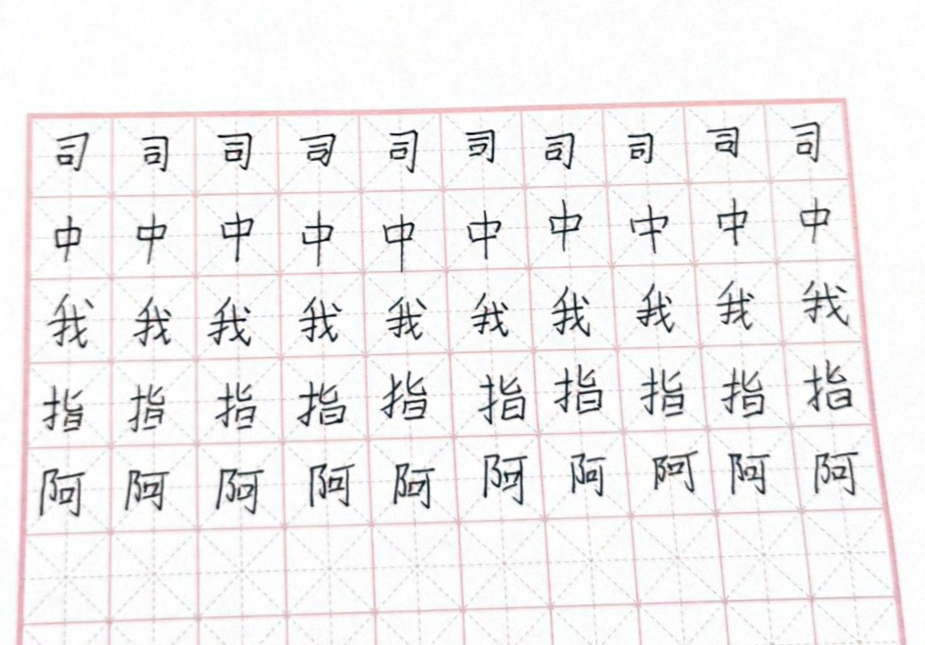 司司司司司司司司司司
中中中中中中中中中中
我我我我我我我我我我
指指指指指指指指指指
阿阿阿阿阿阿阿阿阿阿